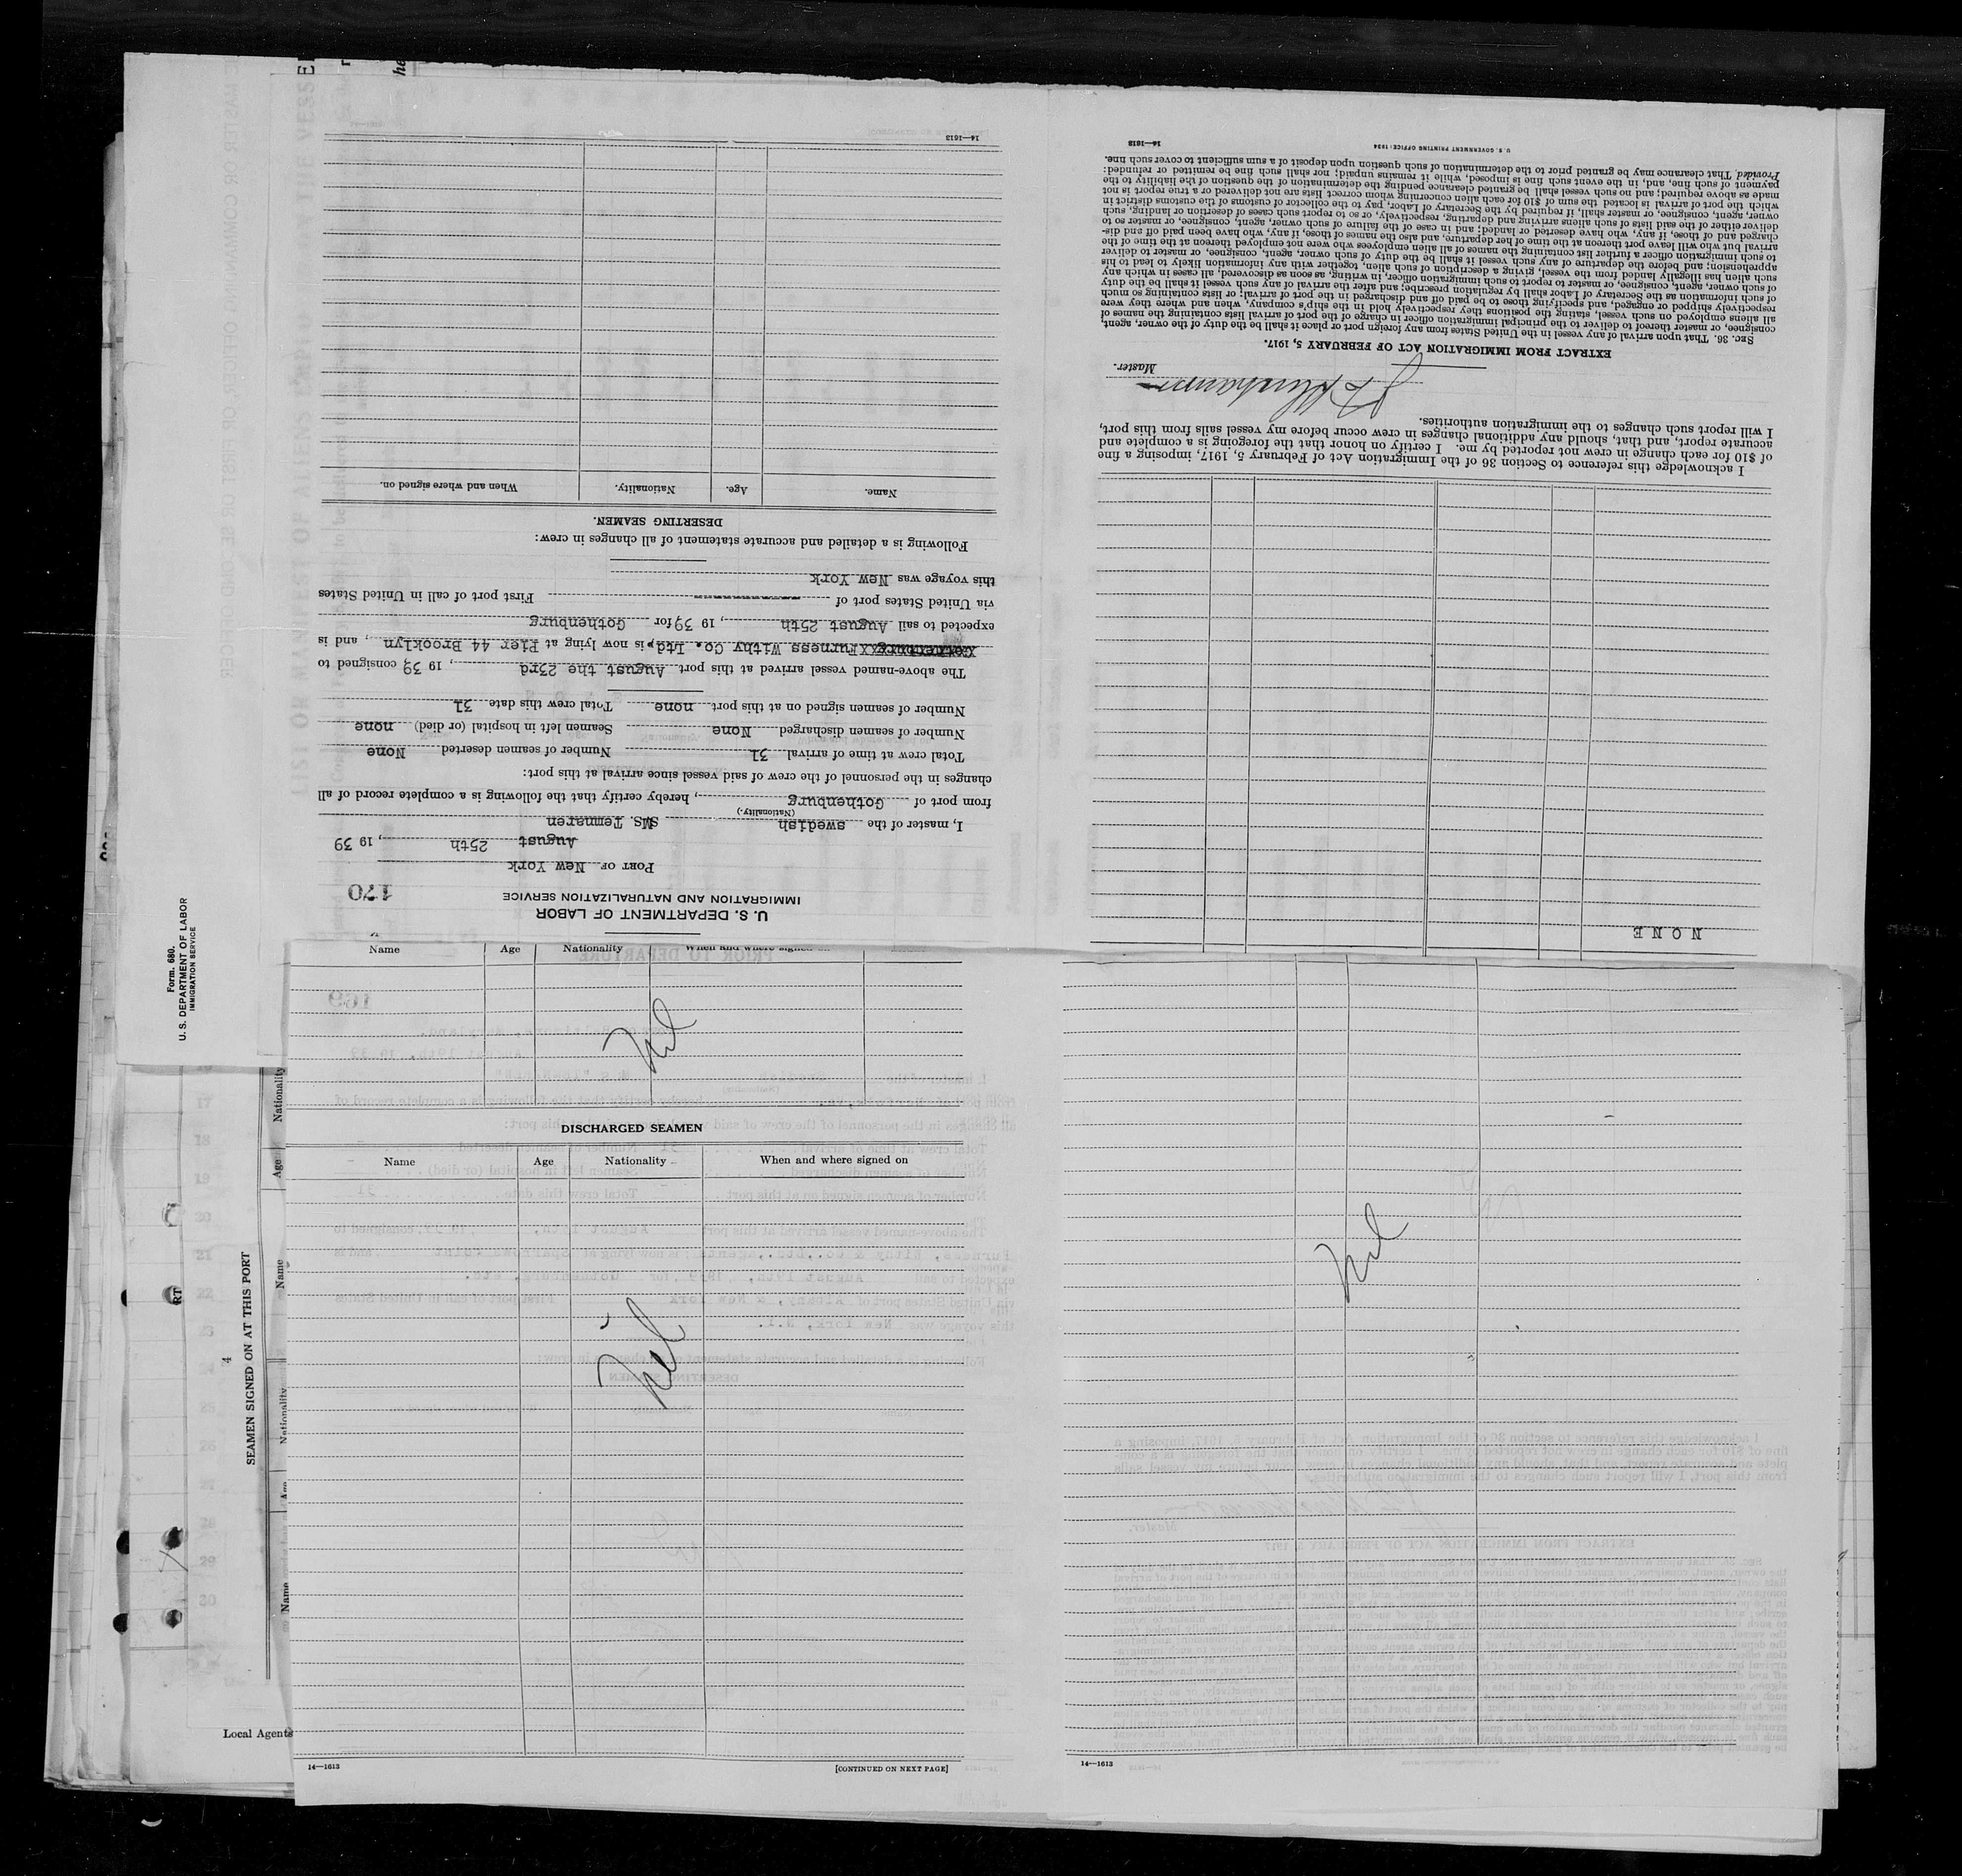 U. S. DEPARTMENT OF LABOR
IMMIGRATION AND NATURALIZATION SERVICE
170
PORT OF New York
August 25th, 19 39
I, master of the swedish SMS. Temnaren
(Nationality.)
from port of Gothenburg, hereby certify that the following is a complete record of all
changes in the personnel of the crew of said vessel since arrival at this port:
Total crew at time of arrival 31 Number of seamen deserted None
Number of seamen discharged None Seamen left in hospital (or died) none
Number of seamen signed on at this port none Total crew this date 31
The above-named vessel arrived at this port August the 23rd, 19 39 consigned to
Furness Withy Co. Ltd, is now lying at Pier 44 Brooklyn, and is
expected to sail August 25th, 19 39 for Gothenburg
via United States port of ---------------- First port of call in United States
this voyage was New York
Following is a detailed and accurate statement of all changes in crew:
DESERTING SEAMEN.
Name. Age. Nationality. When and where signed on.
14—1613
NONE
I acknowledge this reference to Section 36 of the Immigration Act of February 5, 1917, imposing a fine
of $10 for each change in crew not reported by me. I certify on honor that the foregoing is a complete and
accurate report, and that, should any additional changes in crew occur before my vessel sails from this port,
I will report such changes to the immigration authorities.
Master.
EXTRACT FROM IMMIGRATION ACT OF FEBRUARY 5, 1917.
SEC. 36. That upon arrival of any vessel in the United States from any foreign port or place it shall be the duty of the owner, agent,
consignee, or master thereof to deliver to the principal immigration officer in charge of the port of arrival lists containing the names of
all aliens employed on such vessel, stating the positions they respectively hold in the ship's company, when and where they were
respectively shipped or engaged, and specifying those to be paid off and discharged in the port of arrival; or lists containing so much
of such information as the Secretary of Labor shall by regulation prescribe; and after the arrival of any such vessel it shall be the duty
of such owner, agent, consignee, or master to report to such immigration officer, in writing, as soon as discovered, all cases in which any
such alien has illegally landed from the vessel, giving a description of such alien, together with any information likely to lead to his
apprehension; and before the departure of any such vessel it shall be the duty of such owner, agent, consignee, or master to deliver
to such immigration officer a further list containing the names of all alien employees who were not employed thereon at the time of the
arrival but who will leave port thereon at the time of her departure, and also the names of those, if any, who have been paid off and dis-
charged and of those, if any, who have deserted or landed; and in case of the failure of such owner, agent, consignee, or master so to
deliver either of the said lists of such aliens arriving and departing, respectively, or so to report such cases of desertion or landing, such
owner, agent, consignee, or master shall, if required by the Secretary of Labor, pay to the collector of customs of the customs district in
which the port of arrival is located the sum of $10 for each alien concerning whom correct lists are not delivered or a true report is not
made as above required; and no such vessel shall be granted clearance pending the determination of the question of the liability to the
payment of such fine, and, in the event such fine is imposed, while it remains unpaid; nor shall such fine be remitted or refunded:
Provided, That clearance may be granted prior to the determination of such question upon deposit of a sum sufficient to cover such fine.
14—1613
U. S. GOVERNMENT PRINTING OFFICE: 1934
Form 680.
U. S. DEPARTMENT OF LABOR
IMMIGRATION SERVICE
Name Age Nationality When and where signed
Nil
DISCHARGED SEAMEN
Name Age Nationality When and where signed on
Nil
14—1613
[CONTINUED ON NEXT PAGE]
Nil
14—1613
4
SEAMEN SIGNED ON AT THIS PORT
Name Age Nationality
Name Age Nationality
Local Agents